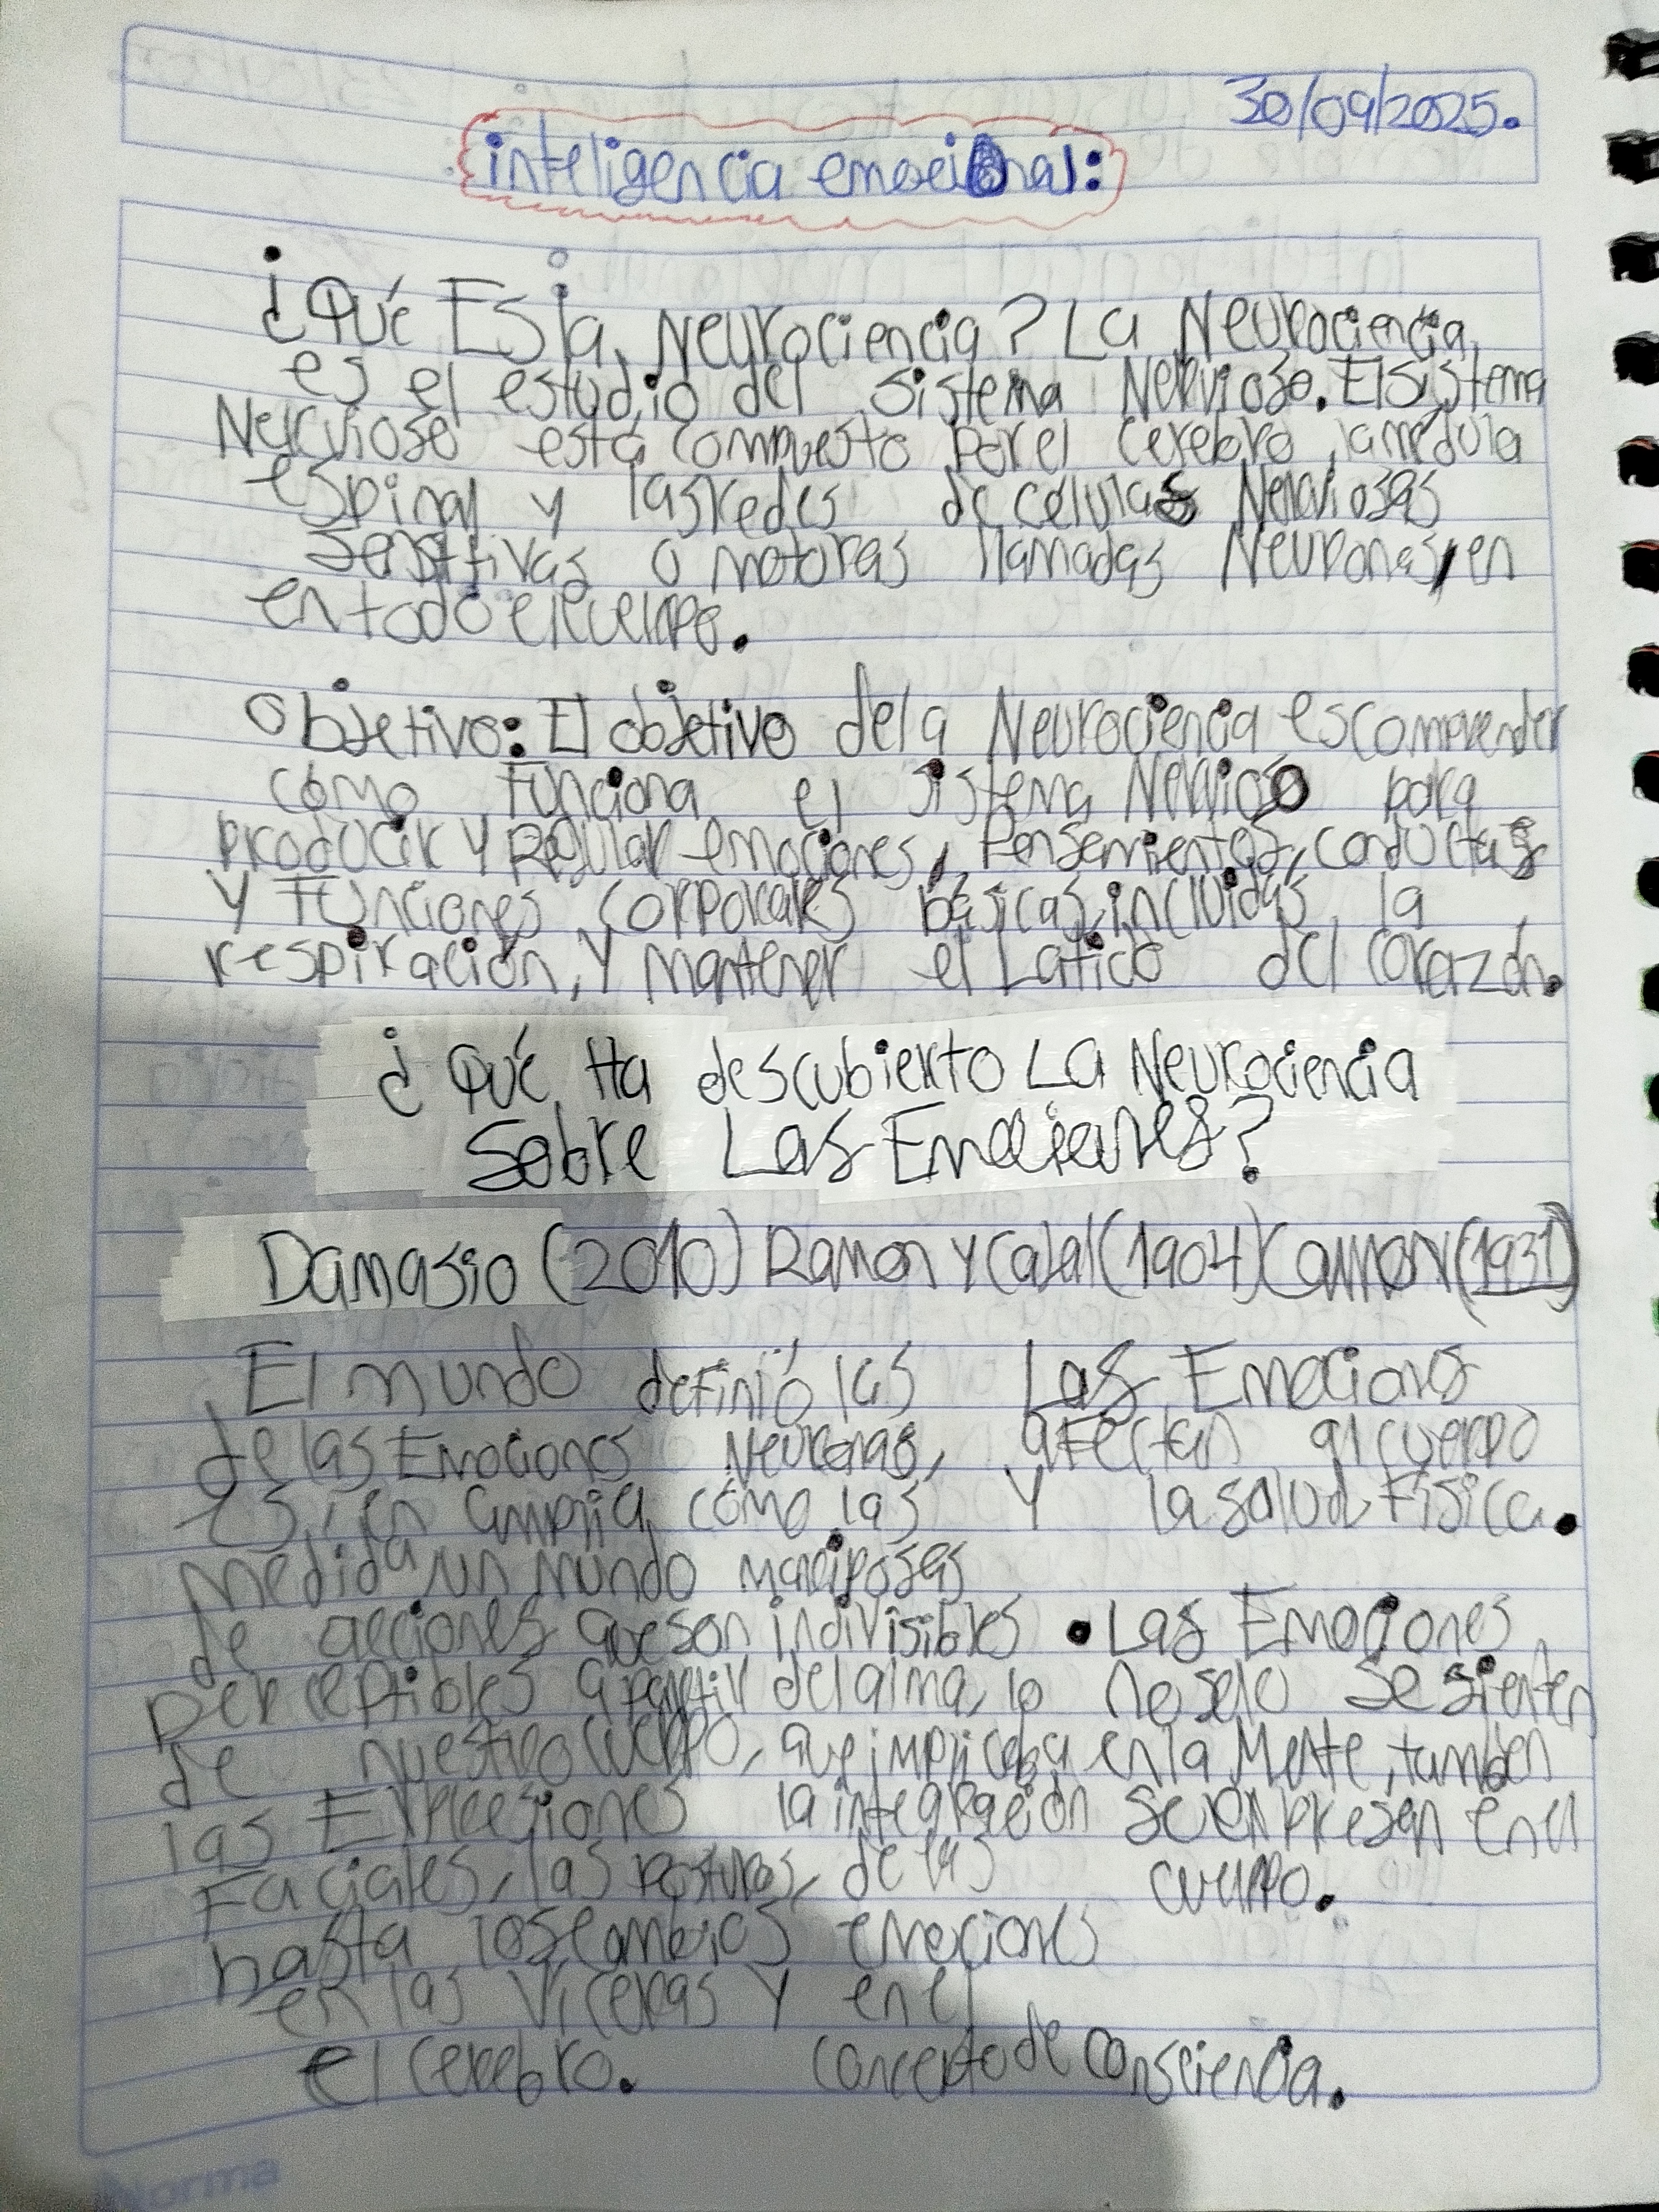 30/09/2025.
inteligencia emocional:
¿Qué Es la Neurociencia? La Neurociencia
es el estudio del sistema Nervioso. El sistema
Nervioso está compuesto por el cerebro, la médula
espinal y las redes de células Nerviosas
sensitivas o motoras llamadas Neuronas, en
en todo el cuerpo.
Objetivo: El objetivo de la Neurociencia es comprender
cómo funciona el sistema Nervioso para
producir y Regular emociones, pensamientos, conductas
y funciones corporales básicas, incluidas la
respiración, y mantener el Latido del corazón.
¿Qué Ha descubierto La Neurociencia
Sobre Las Emociones?
Damasio (2010) Ramon y Cajal (1904) Cannon (1931)
El mundo
de las Emociones
es, en amplia
medida, un mundo
de acciones que son
perceptibles a partir
de nuestro cuerpo,
las Expresiones
Faciales, las posturas,
hasta los cambios
en las víceras y en
el cerebro.
definió las
Neuronas,
cómo las
mariposas
indivisibles
del alma, lo
que implicaba
la integración
de las
emociones
en el
concepto de consciencia.
Las Emociones
afectan al cuerpo
y la salud Física.
• Las Emociones
no solo se sienten
en la Mente, también
se expresan en el
cuerpo.
Norma